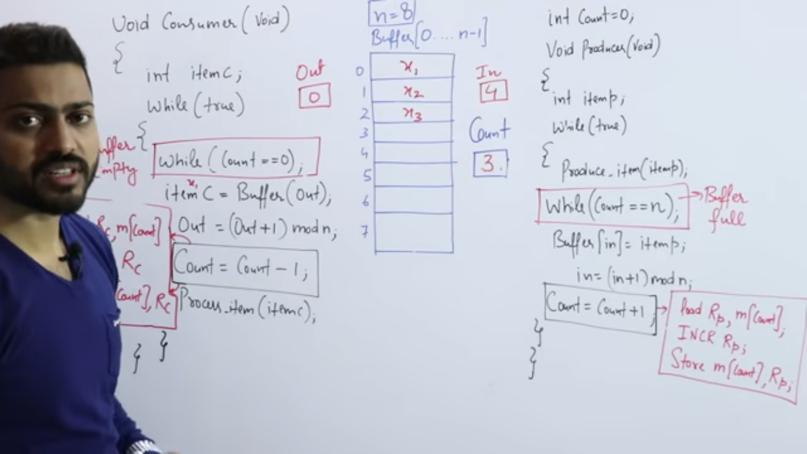 Void Consumer(Void)
{
int itemc;
While(true)
{
Buffer
Empty
While(Count==0);
itemC = Buffer(Out);
x1
Out = (Out+1) mod n;
Count = Count-1;
Process_item(itemc);
}
}
Rc, m[Count]
Rc
Count], Rc
Out
0
n=8
Buffer[0....n-1]
0 x1
1 x2
2 x3
3
4
5
6
7
In
4
Count
3.
int Count=0;
Void Producer(Void)
{
int itemp;
While(true)
{
Produce_item(itemp);
While(Count==n);
→Buffer
full
Buffer[in]= itemp;
in=(in+1)mod n;
Count = Count+1;
}
}
load Rp, m[Count];
INCR Rp;
Store m[Count], Rp;